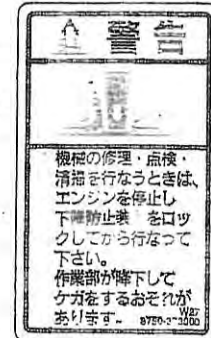 警告
機械の修理・点検・
清掃を行なうときは、
エンジンを停止し
下降防止装 をロッ
クしてから行なって
下さい。
作業部が降下して
ケガをするおそれが
あります。
W27